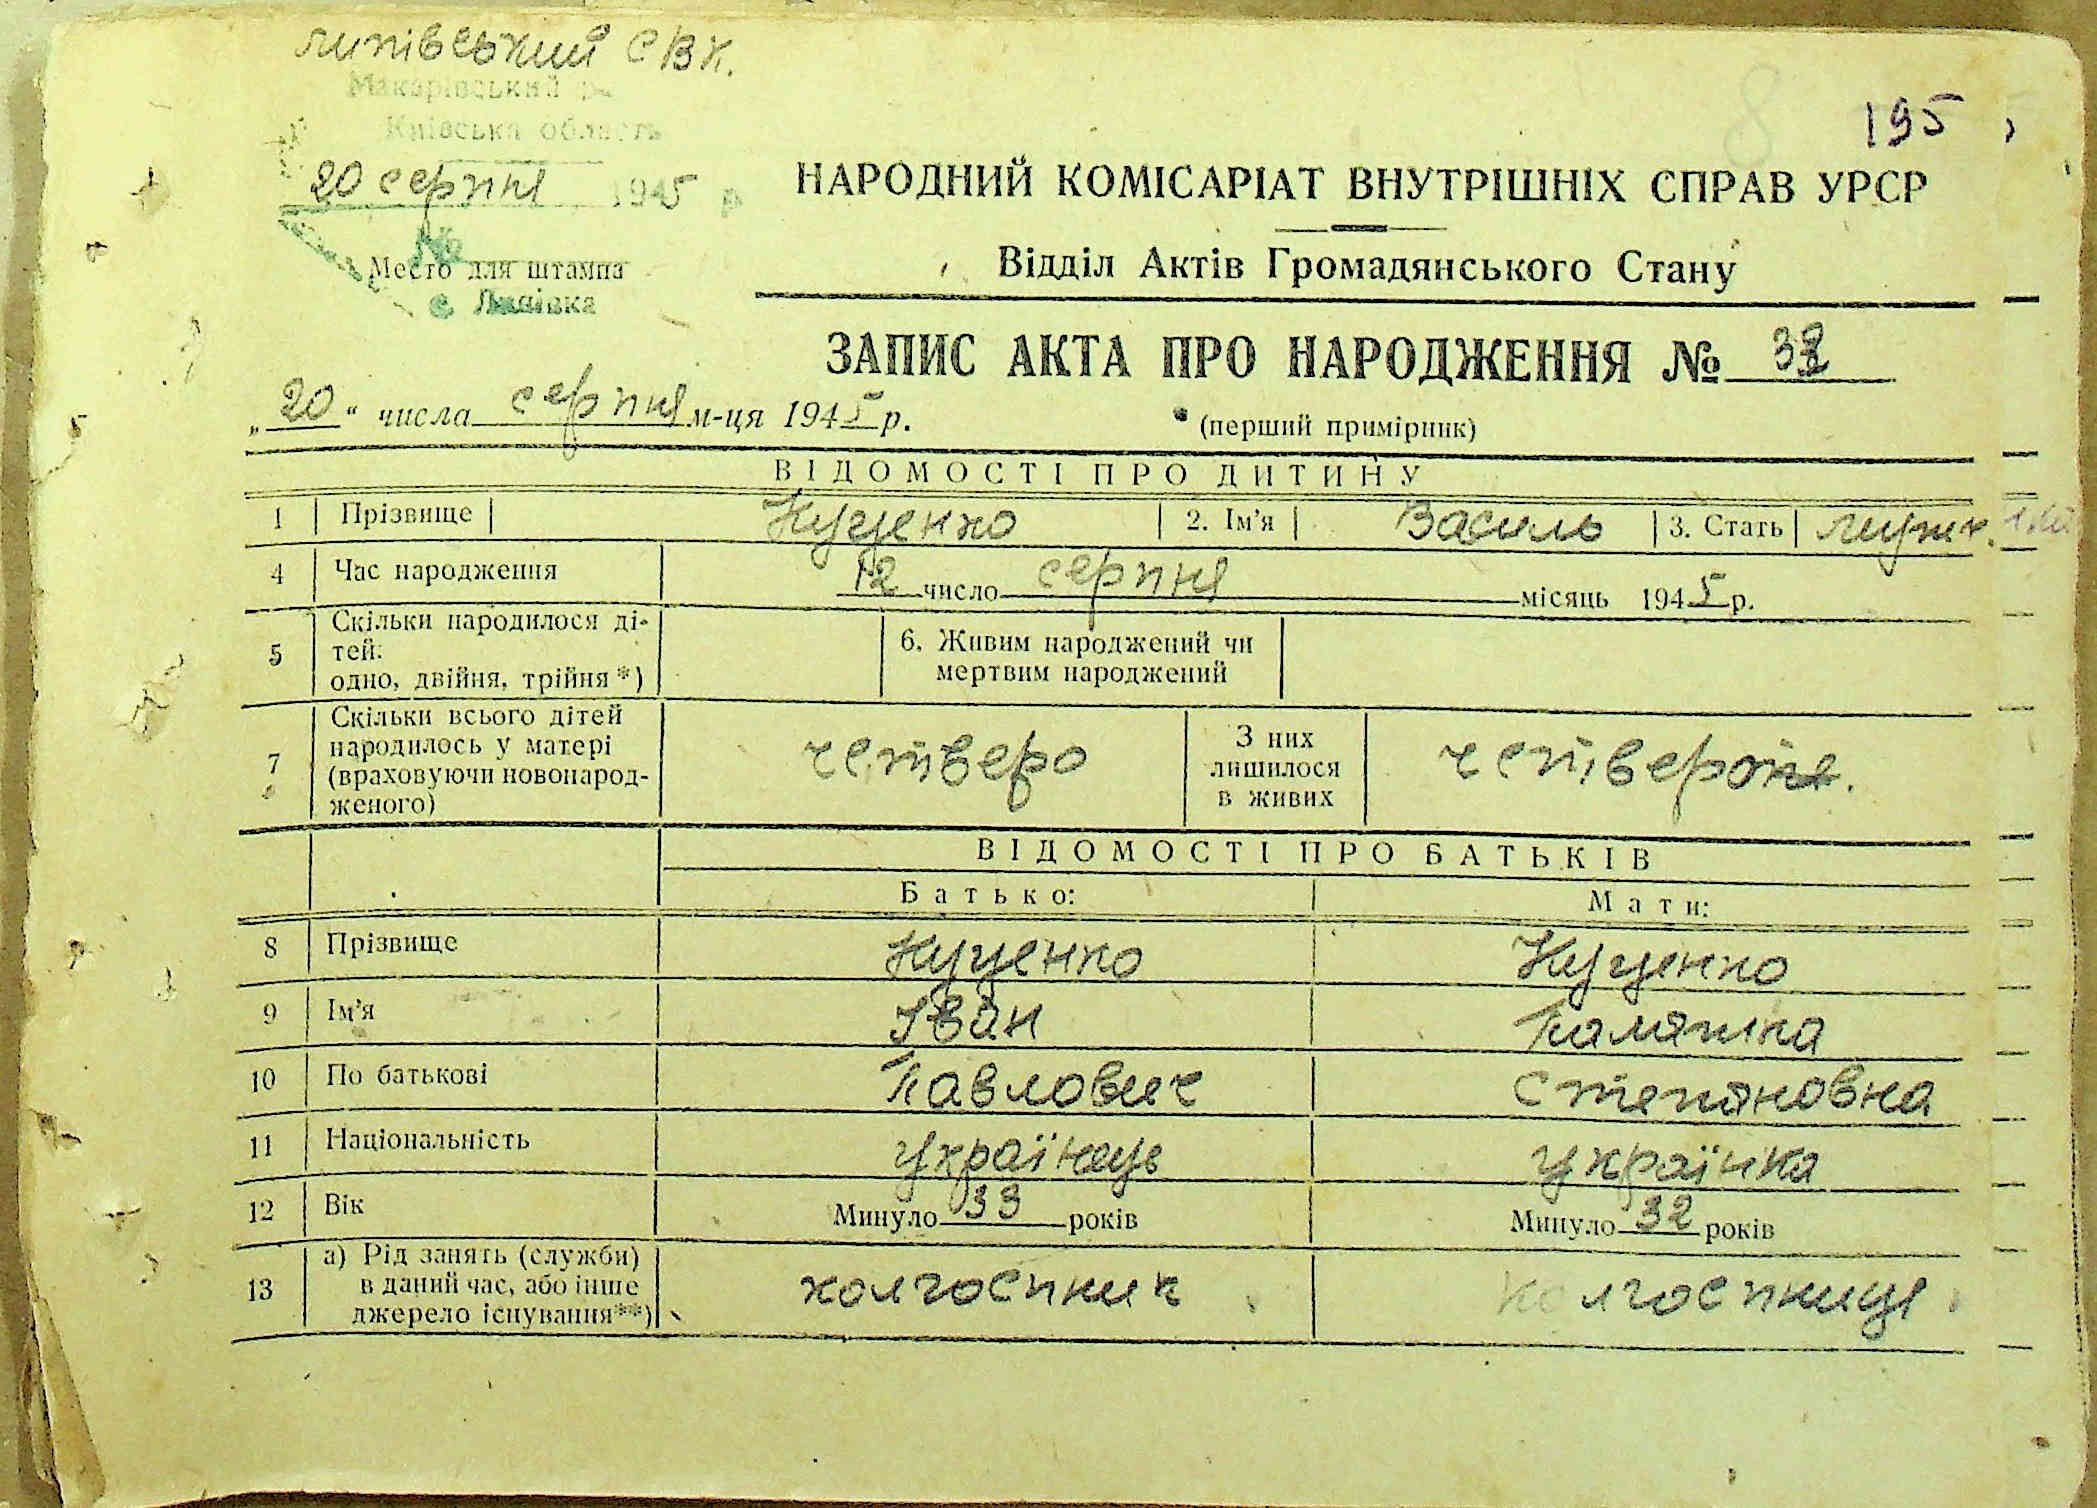 липівський СВК.
Макарівський ра
Київська область
20 серпня 1945 р
№
Место для штампа
с. Липівка
195
НАРОДНИЙ КОМІСАРІАТ ВНУТРІШНІХ СПРАВ УРСР
Відділ Актів Громадянського Стану
ЗАПИС АКТА ПРО НАРОДЖЕННЯ №
„20“ числа серпня м-ця 1945 р.
(перший примірник)
ВІДОМОСТІ ПРО ДИТИНУ
1 Прізвище Куценко 2. Ім'я Василь 3. Стать муж.
4 Час народження 12 число серпня місяць 1945 р.
5 Скільки народилося ді-
тей:
одно, двійня, трійня *)
6. Живим народжений чи
мертвим народжений
7 Скільки всього дітей
народилось у матері
(враховуючи новонарод-
женого)
четверо
З них
лишилося
в живих
ВІДОМОСТІ ПРО БАТЬКІВ
Батько: Мати:
8 Прізвище Куценко Куценко
9 Ім'я Іван
10 По батькові Павлович Степановна
11 Національність українець українка
12 Вік Минуло 33 років Минуло 32 років
13 а) Рід занять (служби)
в даний час, або інше
джерело існування**)
колгоспник колгоспниця